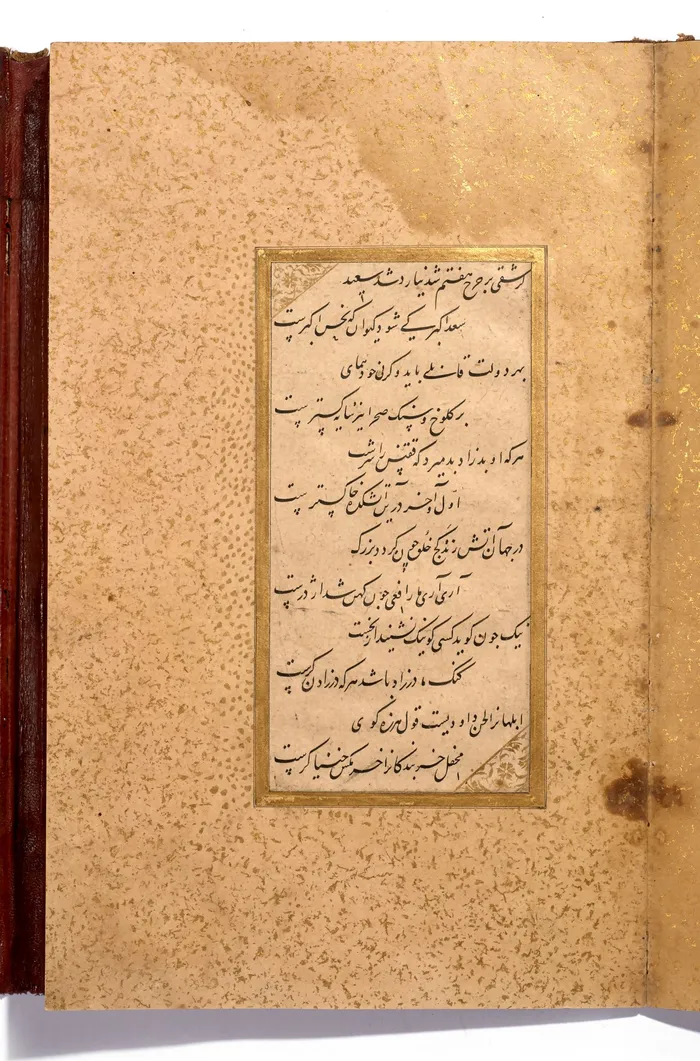 گر شقی بر چرخ هفتم شد نیارد شد سعید
سعد اکبر کی شود کیوان که نحس اکبرست
بهر دولت قابلی باید وگرنی خود همای
بر کلوخ و سنگ صحرا نیز سایه گسترست
هر که او بد زاد بد میرد که ققنس را سرشت
اول و آخر در آتش کده خاکسترست
در جهان آتش زند کج خلق چون گردد بزرگ
آری آری مار افعی چون کهن شد اژدرست
نیک چون گوید کسی کو نیک نشنید از نخست
گنگ مادرزاد باشد هر که در زادن کرست
ابلهانرا لحن داودیست قول هرزه گوی
محفل خربندگانرا خرمگس خنیاگرست